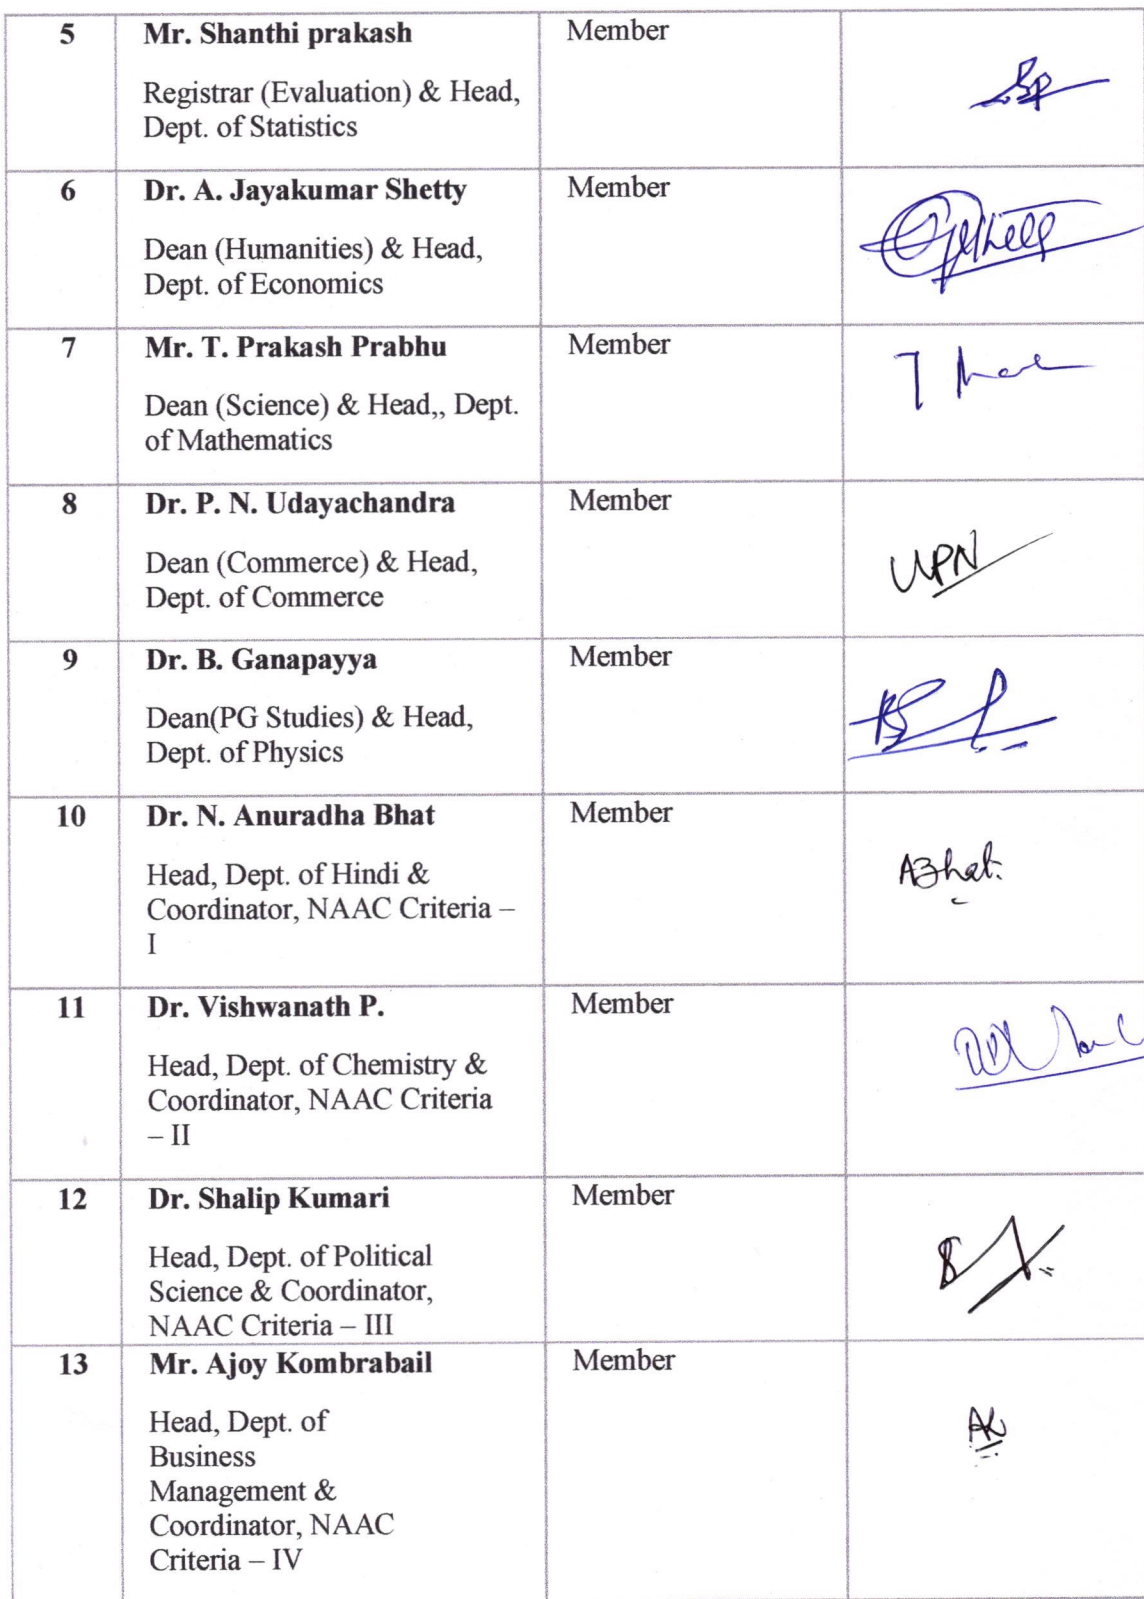 5 Mr. Shanthi prakash Member
Registrar (Evaluation) & Head,
Dept. of Statistics
6 Dr. A. Jayakumar Shetty Member
Dean (Humanities) & Head,
Dept. of Economics
7 Mr. T. Prakash Prabhu Member
Dean (Science) & Head,, Dept.
of Mathematics
8 Dr. P. N. Udayachandra Member
Dean (Commerce) & Head,
Dept. of Commerce
UPN
9 Dr. B. Ganapayya Member
Dean(PG Studies) & Head,
Dept. of Physics
10 Dr. N. Anuradha Bhat Member
Head, Dept. of Hindi &
Coordinator, NAAC Criteria –
I
ABhat
11 Dr. Vishwanath P. Member
Head, Dept. of Chemistry &
Coordinator, NAAC Criteria
– II
12 Dr. Shalip Kumari Member
Head, Dept. of Political
Science & Coordinator,
NAAC Criteria – III
13 Mr. Ajoy Kombrabail Member
Head, Dept. of
Business
Management &
Coordinator, NAAC
Criteria – IV
AK